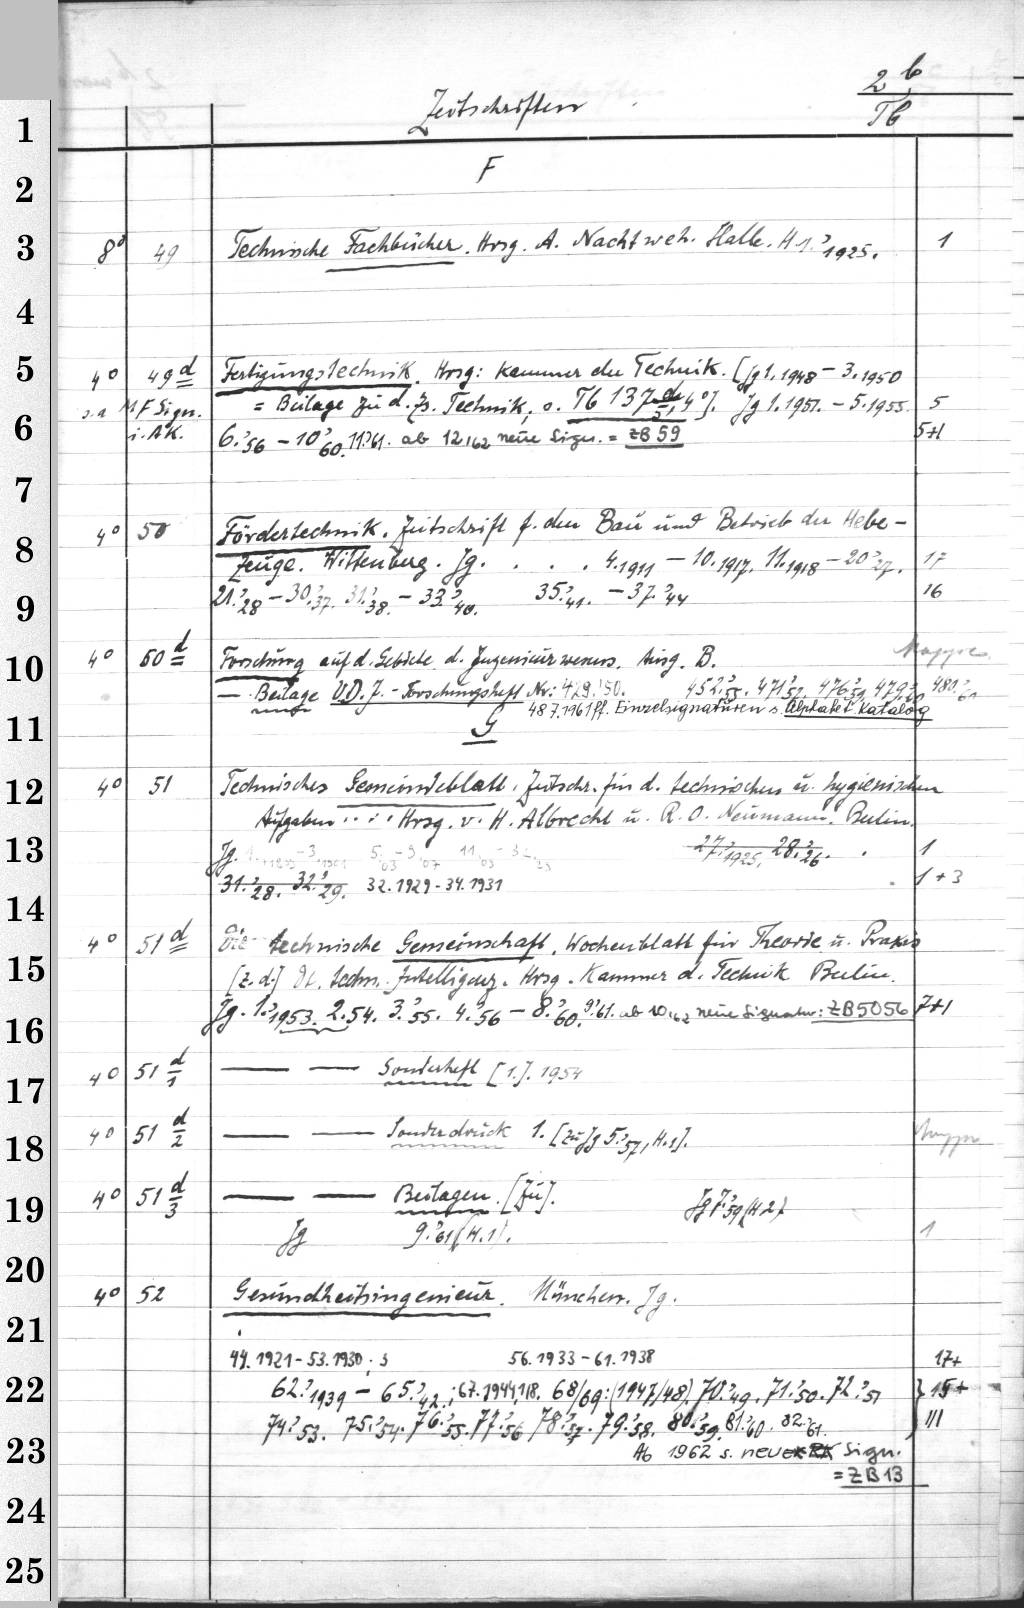 2 b
Zeitschriften
Tb
1
F
2
3 8° 49 Technische Fachbücher. Hrsg. A. Nachtweh. Halle. H 1.' 1925. 1
4
5 4° 49 d Fertigungstechnik. Hrsg: Kammer der Technik. [Jg 1.1948 - 3.1950
s.a MF Sign. = Beilage zu d. Zs. Technik, s. Tb 137 d/5, 4°]. Jg 1.1951. - 5.1955. 5
6 i. AK. 6.'56 - 10'60. 11.'61. ab 12.'62 neue Sign. = ZB 59 5+1
7
8 4° 50 Fördertechnik. Zeitschrift f. den Bau und Betrieb der Hebe-
zeuge. Wittenberg. Jg. . . . 4.1911 - 10.1917. 11.1918 - 20.'27. 17
9 21.'28 - 30.'37. 31.'38. - 33.'40. 35.'41. - 37.'44 16
10 4° 50 d Forschung auf d. Gebiete d. Ingenieurwesens. Ausg. B. Mappe.
— Beilage V.D.I. - Forschungsheft Nr: 429.'50. 452.'55. 471.'57. 476.'59. 479.'60. 481.'60
487.1961ff. Einzelsignaturen s. Alphabet. Katalog
11 G
12 4° 51 Technisches Gemeindeblatt. Zeitschr. für d. technischen u. hygienischen
Aufgaben . . . Hrsg. v. H. Albrecht u. R. O. Neumann. Berlin.
13 Jg. 27.'1925. 28.'26. . 1
31.'28. 32.'29. 32.1929-34.1931 1+3
14
4° 51 d Die technische Gemeinschaft. Wochenblatt für Theorie u. Praxis
15 [z. d.] dt. techn. Intelligenz. Hrsg. Kammer d. Technik Berlin.
16 Jg. 1.'1953. 2.54. 3.'55. 4.'56 - 8.'60. 9.'61. ab 10.'62 neue Signatur: ZB 5056 7+1
17 4° 51 d/1 — — Sonderheft [1.]. 1954
18 4° 51 d/2 — — Sonderdruck 1. [zu Jg 5.'57, H.1]. Mappe
19 4° 51 d/3 — — Beilagen. [zu]. Jg 7.'59 (H.2)
Jg 9.'61 (H.1). 1
20
4° 52 Gesundheitsingenieur. München. Jg.
21
44.1921-53.1930 56.1933-61.1938 17+
22 62.'1939 - 65.'42. 67.1944,1/8. 68/69: (1947/48). 70.'49. 71.'50. 72.'51 } 15+
74.'53. 75.'54. 76.'55. 77.'56 78.'57. 79.'58. 80.'59. 81.'60. 82.'61. III
23 Ab 1962 s. neue Sign.
= ZB 13
24
25